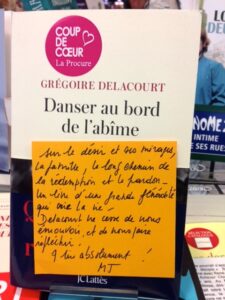 COUP
DE
CŒUR
La Procure
GRÉGOIRE DELACOURT
Danser au bord
de l'abîme
Sur le désir et ses mirages,
la famille, le long chemin de
la rédemption et le pardon
Un livre d'une grande
qui crie la vie
Delacourt ne cesse de nous
émouvoir, et de nous faire
réfléchir.
A lire absolument !
MT
JC Lattès